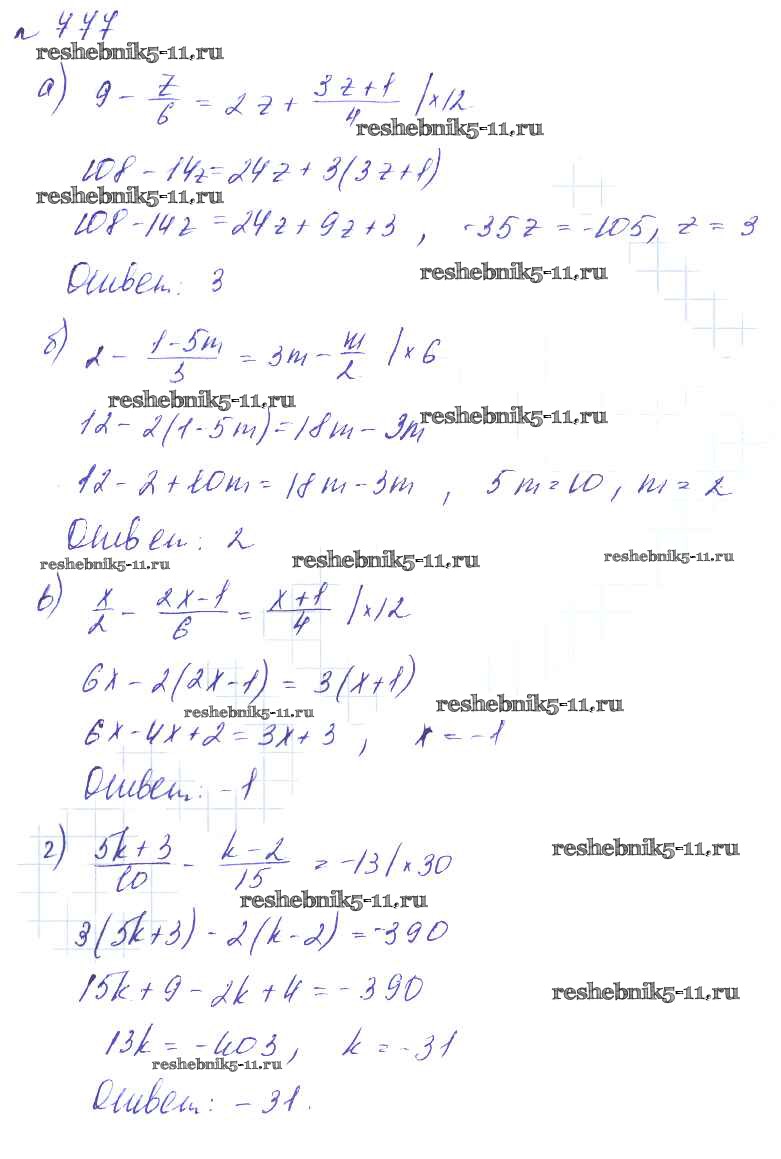 n 777
reshebnik5-11.ru
а) 9 - z/6 = 2z + (3z+1)/4 |×12
reshebnik5-11.ru
108 - 14z = 24z + 3(3z+1)
reshebnik5-11.ru
108 - 14z = 24z + 9z + 3 , -35z = -105, z = 3
Ответ: 3
reshebnik5-11.ru
б) 2 - (1-5m)/3 = 3m - m/2 |×6
reshebnik5-11.ru
12 - 2(1-5m) = 18m - 3m
reshebnik5-11.ru
12 - 2 + 10m = 18m - 3m , 5m = 10, m = 2
Ответ: 2
reshebnik5-11.ru reshebnik5-11.ru reshebnik5-11.ru
в) x/2 - (2x-1)/6 = (x+1)/4 |×12
6x - 2(2x-1) = 3(x+1)
reshebnik5-11.ru reshebnik5-11.ru
6x - 4x + 2 = 3x + 3 , x = -1
Ответ: -1
г) (5k+3)/10 - (k-2)/15 = -13 |×30
reshebnik5-11.ru
reshebnik5-11.ru
3(5k+3) - 2(k-2) = -390
15k + 9 - 2k + 4 = -390
reshebnik5-11.ru
13k = -403, k = -31
reshebnik5-11.ru
Ответ: -31.